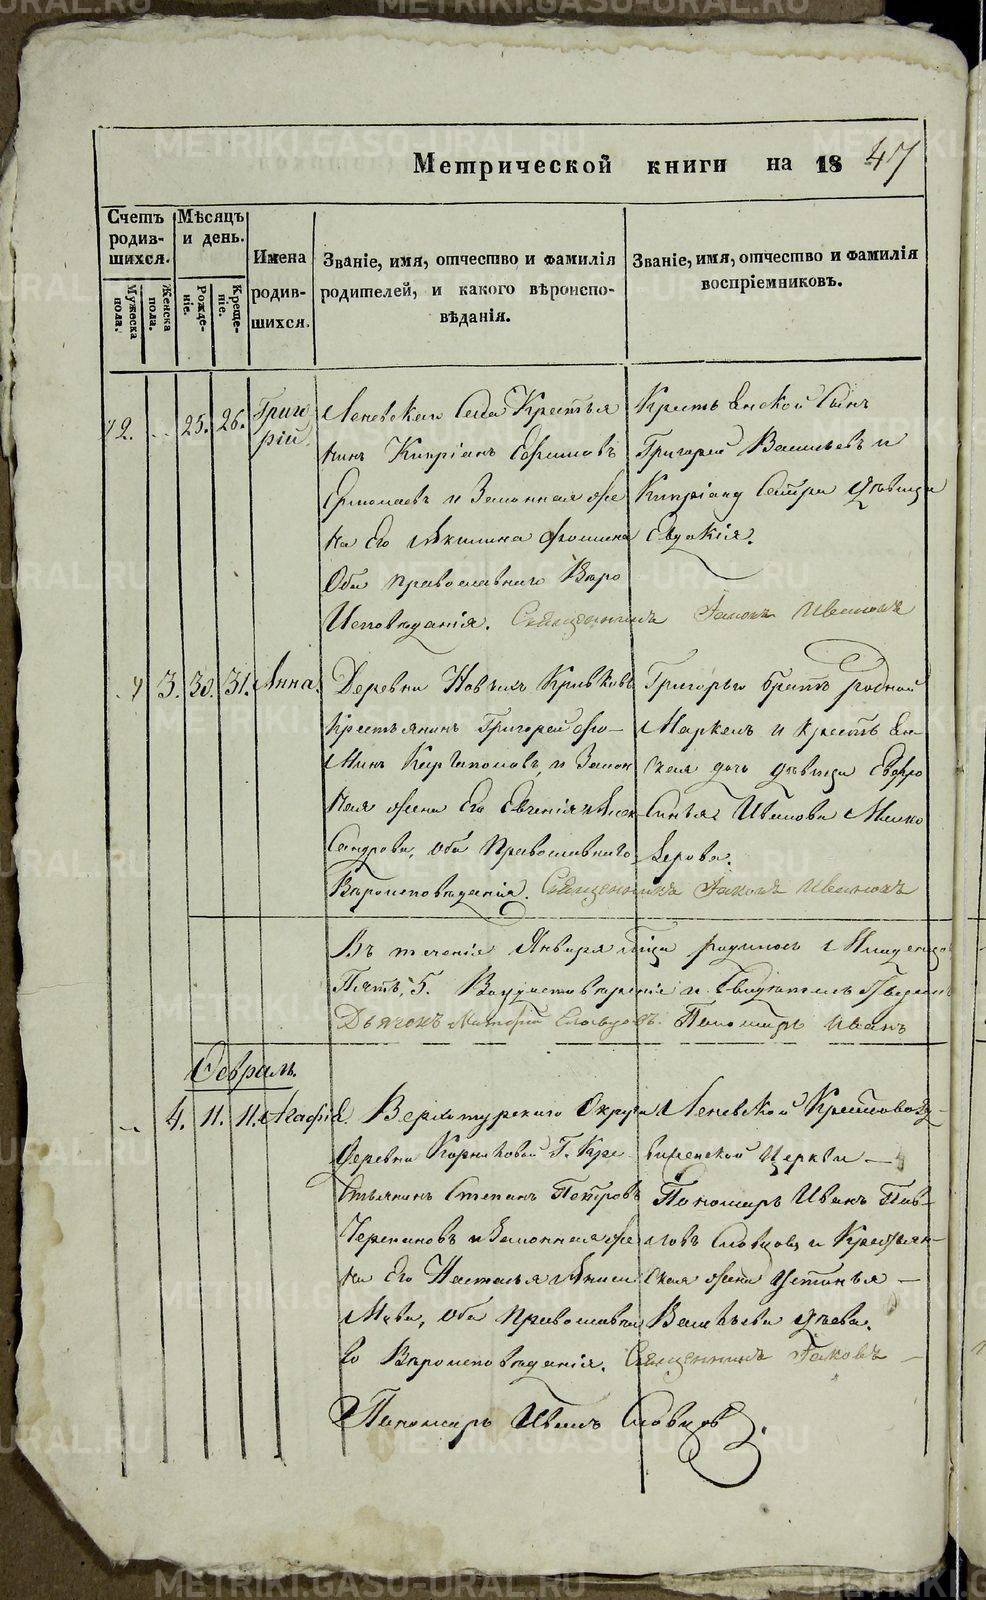 Метрической книги на 1847
Счетъ родив-шихся.
Мужеска пола.
Женска пола.
Мѣсяцъ и день.
Рожде-ніе.
Креще-ніе.
Имена родив-шихся.
Званіе, имя, отчество и фамилія
родителей, и какого вѣроиспо-
вѣданія.
Званіе, имя, отчество и фамилія
воспріемниковъ.
2. 25. 26. Григо
рій
Леневскаго Села Крестья
нинъ Кипріанъ Ефимовъ
Ермолаевъ и Законная же
на Его Акилина Фомина
Оба православнаго Вѣро
Исповѣданія. Священникъ Іаковъ Ивановъ
Крестьянской Сынъ
Григорей Васильевъ и
Кипріану Сестра дѣвица
Евдокія.
3. 30. 31. Анна.
Деревни Новыхъ Кривковъ
Крестьянинъ Григорей Фо-
минъ и Закон
ная жена Его Евгенія Алек
сандрова, оба Православнаго
Вѣроисповѣданія. Священникъ Іаковъ Ивановъ
Григорью братъ родной
Маркелъ и крестьян
ская дочь дѣвица Евфро
синья Иванова
Въ теченіи Января мѣсяца родилось Младенцовъ
Пять, 5.
Дьячокъ Пономарь Иванъ
Февраль.
4. 11. 11. Агафія.
Верхотурскаго Округа
Деревни Г. Кре
стьянинъ Степанъ Петровъ
Черепановъ и Законная же
на Его Наталья Аниси
мова, оба Православна
го Вѣроисповѣданія. Священникъ Іаковъ
Леневской Крестовозд-
виженской Церкви
Пономарь Иванъ Пав-
ловъ Словцовъ и Крестьян-
ская жена Устинья
Васильева
Пономарь Иванъ Словцовъ.
METRIKI.GASO-URAL.RU